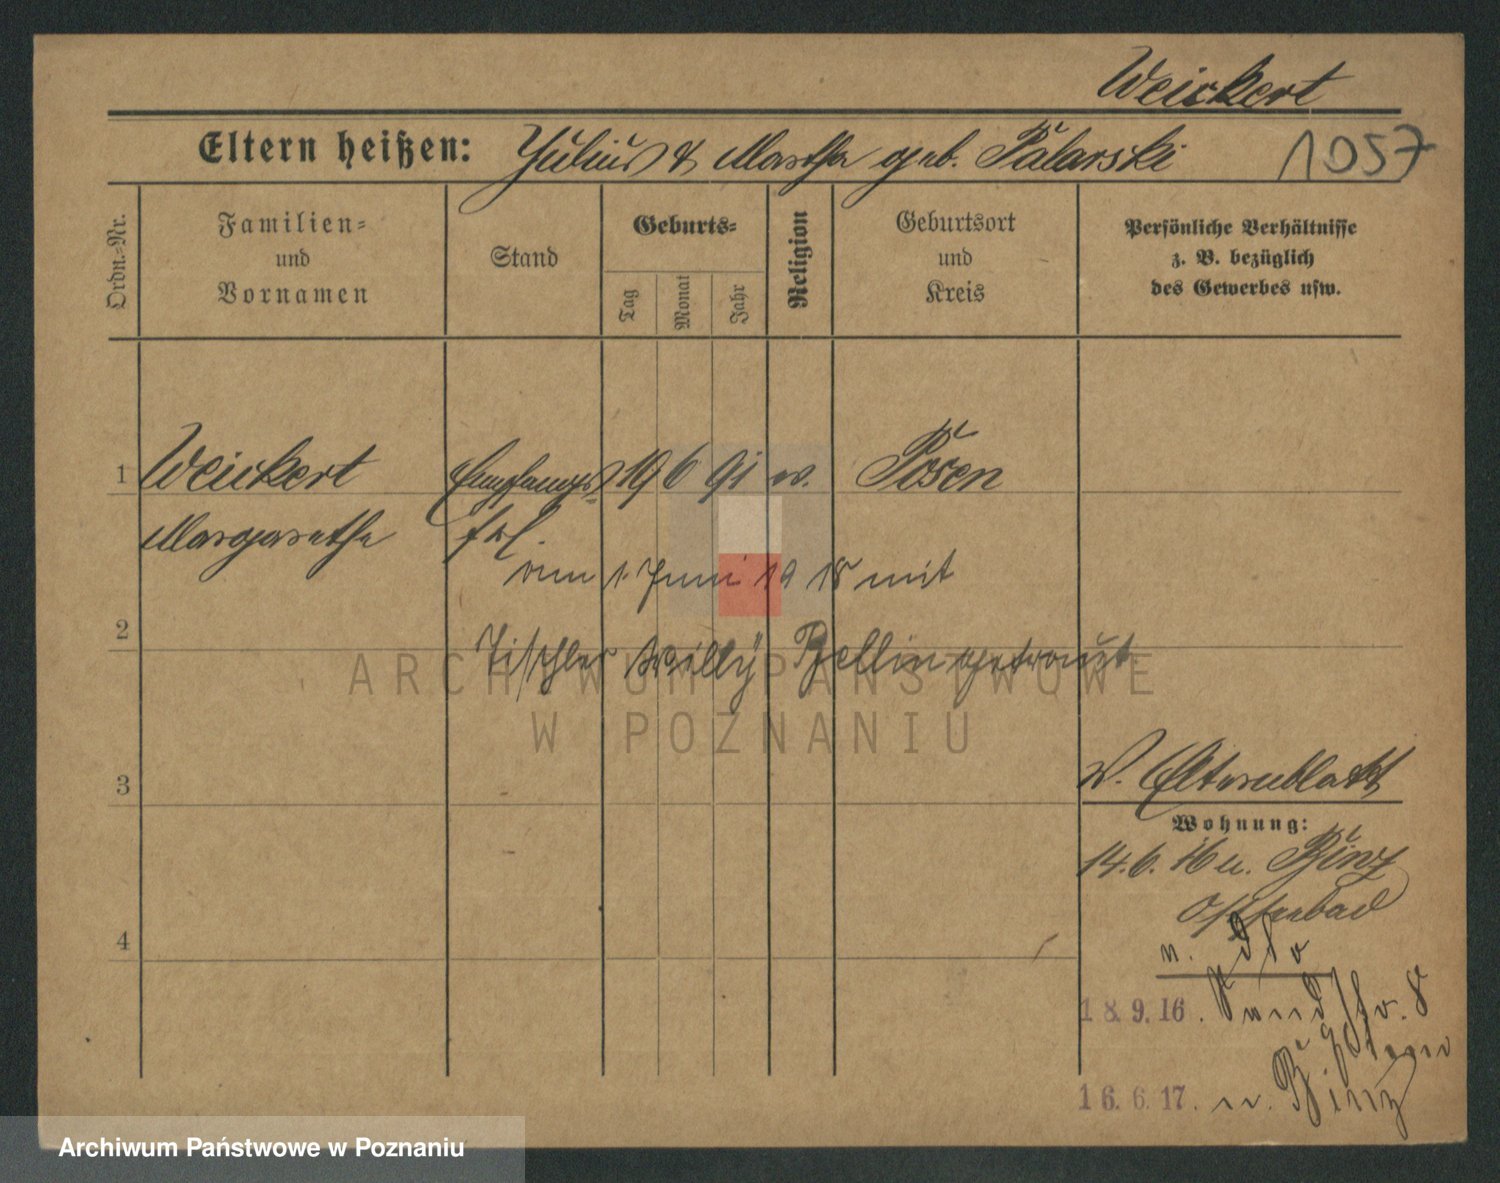 Weickert
Eltern heißen: Julius & Martha geb. Palarski 1057
Ordn.-Nr.
Familien-
und
Vornamen
Stand
Geburts-
Tag
Monat
Jahr
Religion
Geburtsort
und
Kreis
Persönliche Verhältnisse
z. B. bezüglich
des Gewerbes usw.
1 Weickert Empfangs- 19 6 91 Posen
Margarethe frl.
am 1. Juni 1918 mit
2
Tischler Willy Bellin getraut.
ARCHIWUM PAŃSTWOWE
W POZNANIU
3
v. Elternblatt
Wohnung:
14.6.16 n. Binz
Ostseebad
4
n.
18.9.16. Sandstr. 8
16.6.17. n. Binz
Archiwum Państwowe w Poznaniu